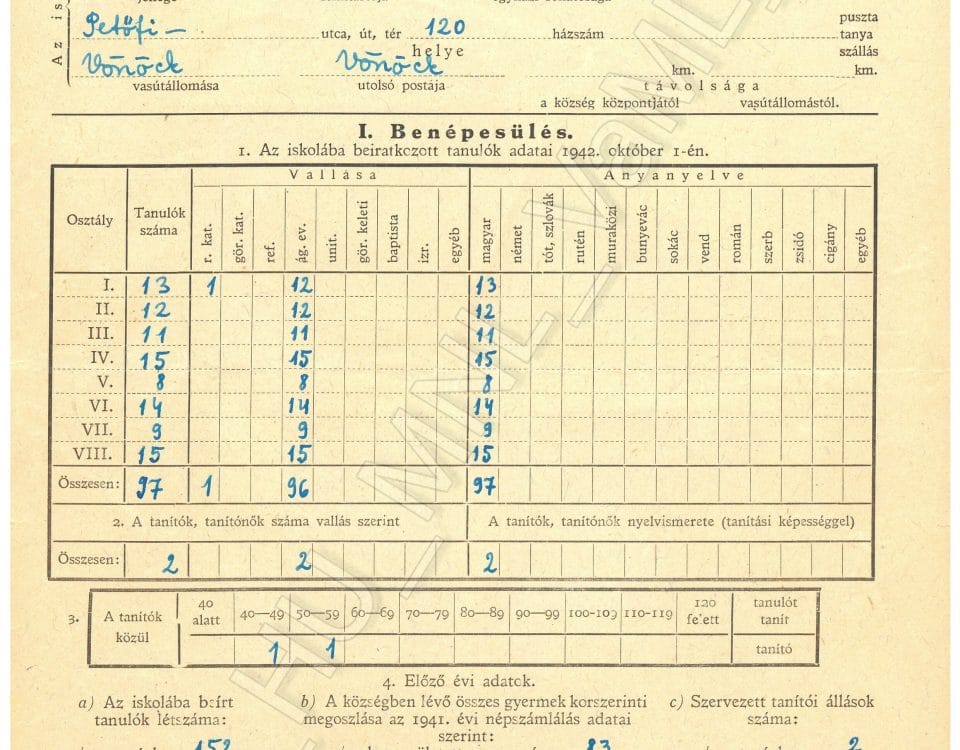 Az is
Petőfi — utca, út, tér 120 házszám puszta
tanya
helye szállás
Vönöck Vönöck km. km.
vasútállomása utolsó postája távolsága
a község központjától vasútállomástól.
I. Benépesülés.
1. Az iskolába beiratkozott tanulók adatai 1942. október 1-én.
Osztály Tanulók száma Vallása Anyanyelve
r. kat. gör. kat. ref. ág. ev. unit. gör. keleti baptista izr. egyéb magyar német tót, szlovák rutén muraközi bunyevác sokác vend román szerb zsidó cigány egyéb
I. 13 1 12 13
II. 12 12 12
III. 11 11 11
IV. 15 15 15
V. 8 8 8
VI. 14 14 14
VII. 9 9 9
VIII. 15 15 15
Összesen: 97 1 96 97
2. A tanítók, tanítónők száma vallás szerint A tanítók, tanítónők nyelvismerete (tanítási képességgel)
Összesen: 2 2 2
3. A tanítók közül 40 alatt 40—49 50—59 60—69 70—79 80—89 90—99 100-109 110-119 120 felett tanulót tanít
1 1 tanító
4. Előző évi adatok.
a) Az iskolába beírt b) A községben lévő összes gyermek korszerinti c) Szervezett tanítói állások
tanulók létszáma: megoszlása az 1941. évi népszámlálás adatai száma:
szerint:
152 83 2
HU_MNL_VaML